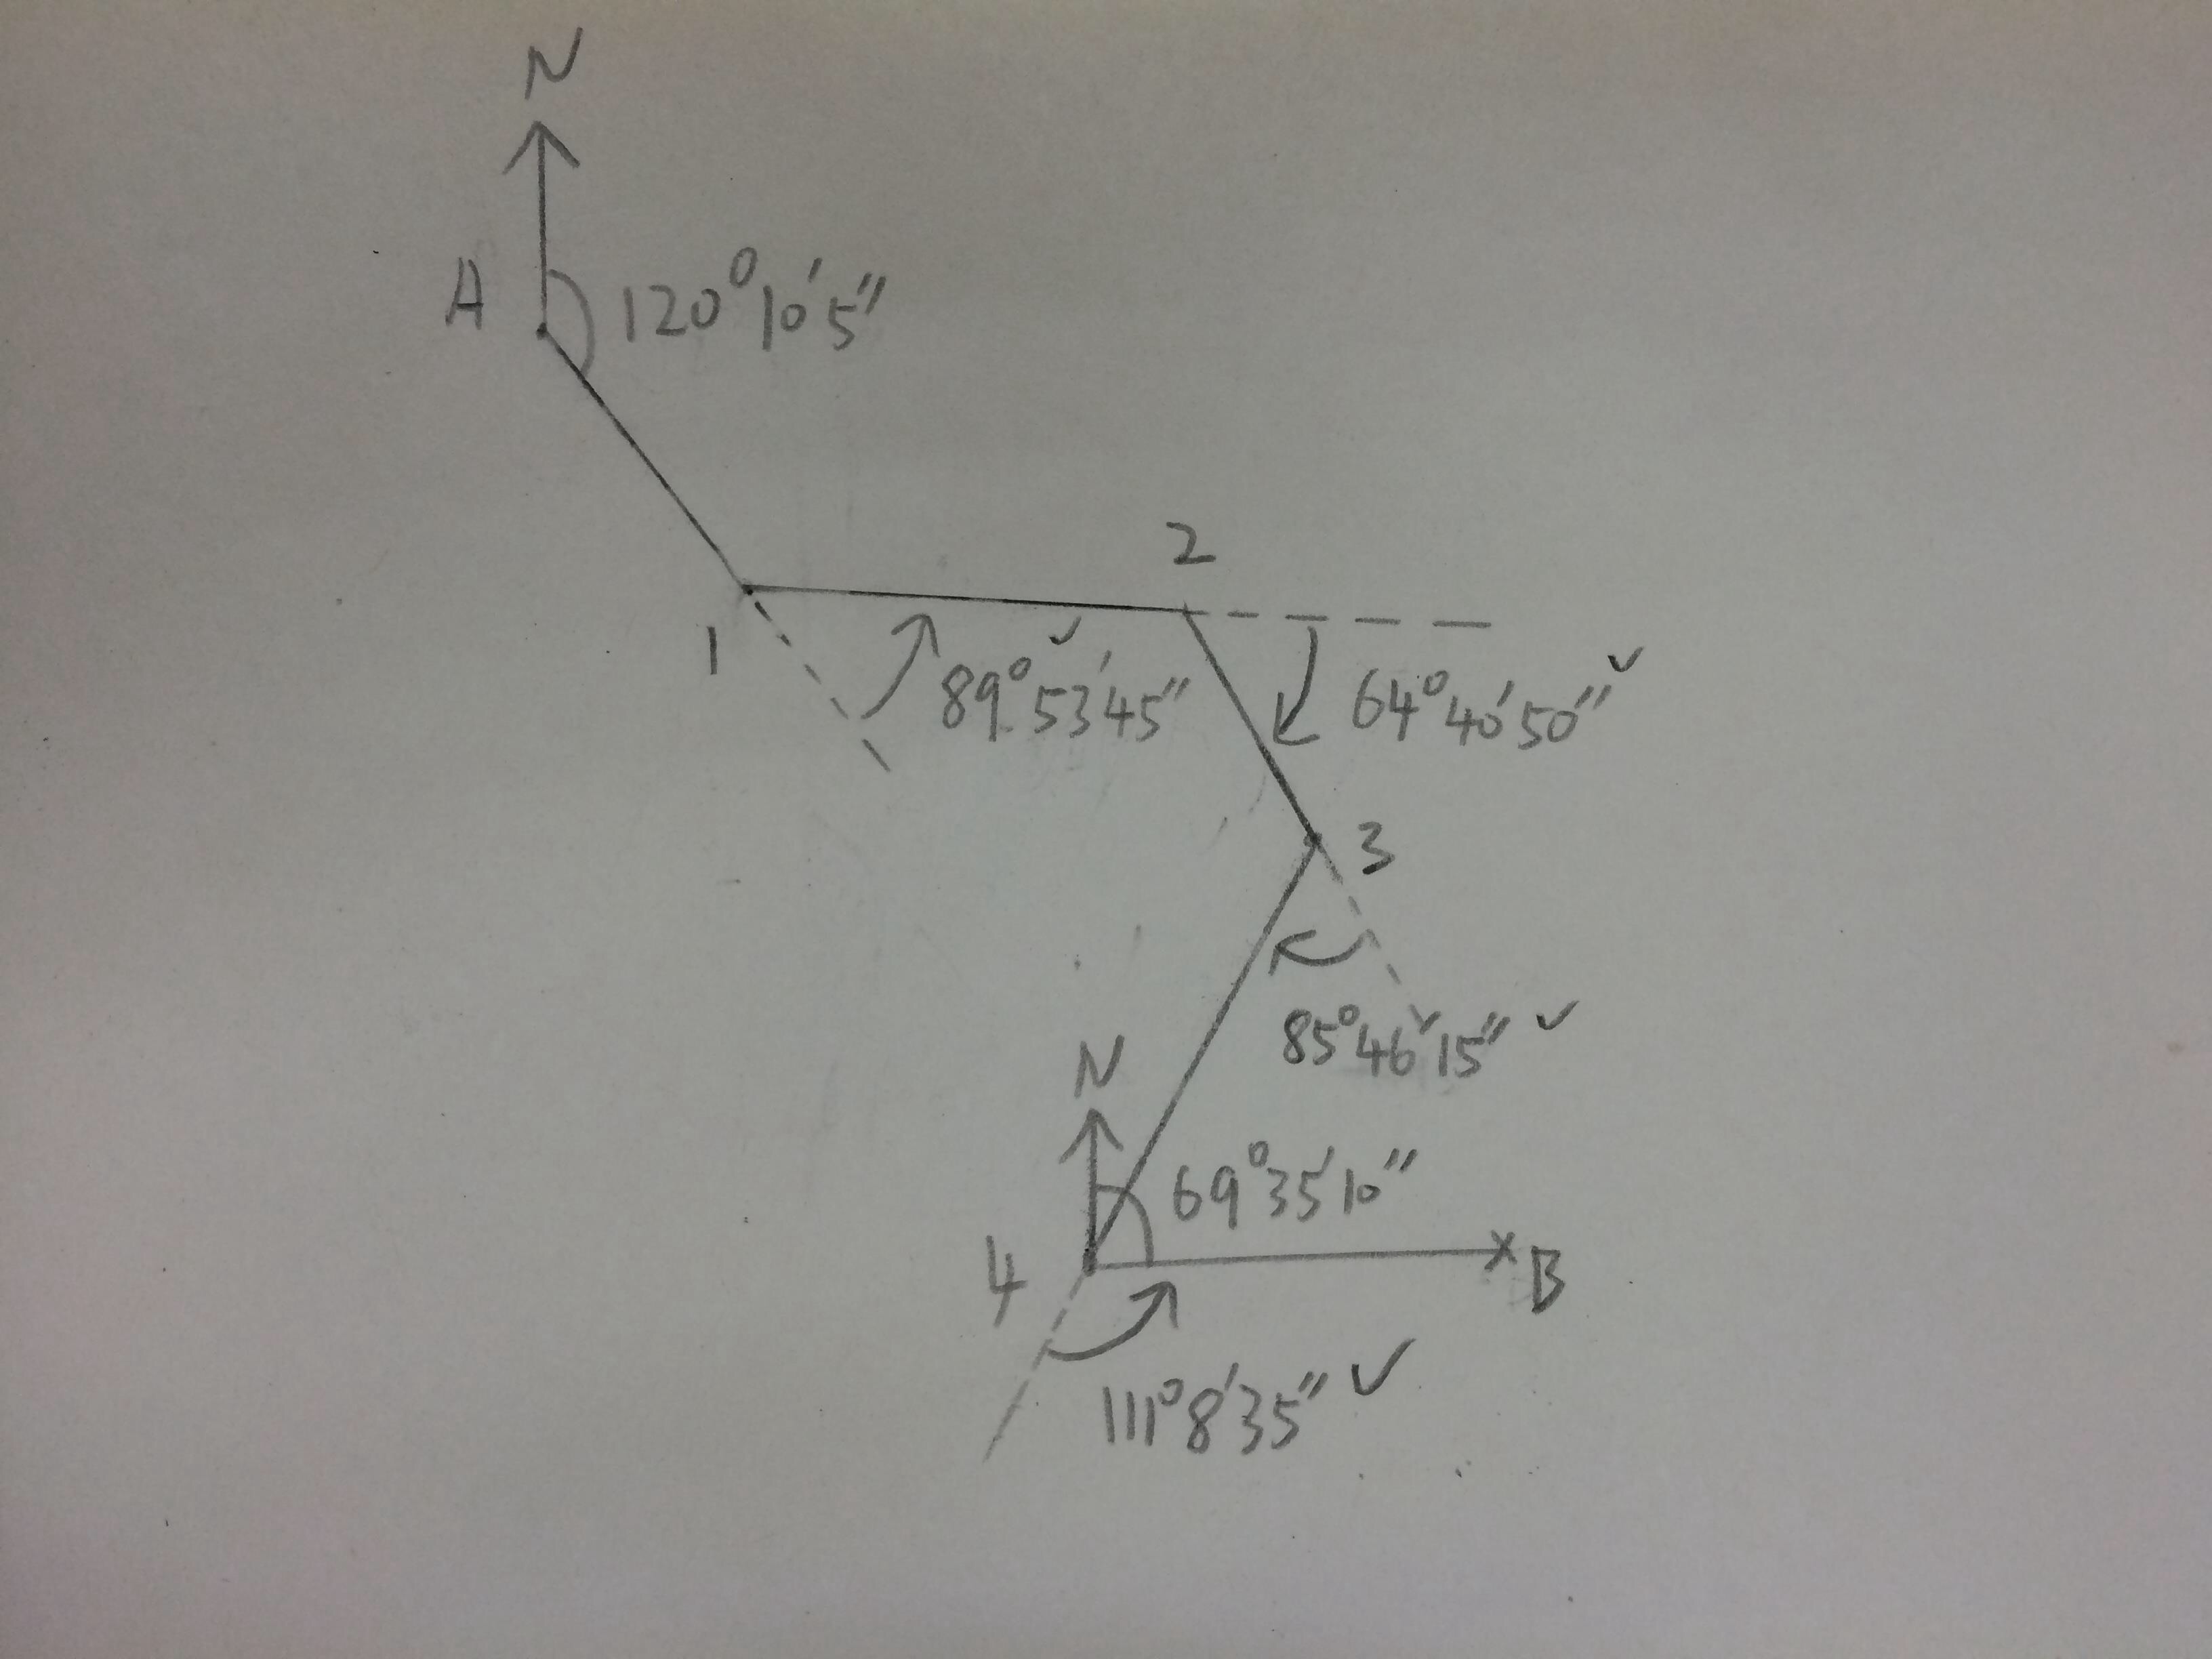 N
A
120°10'5"
2
1
89°53'45"
64°40'50"
3
85°46'15"
N
69°35'10"
4
B
111°8'35"